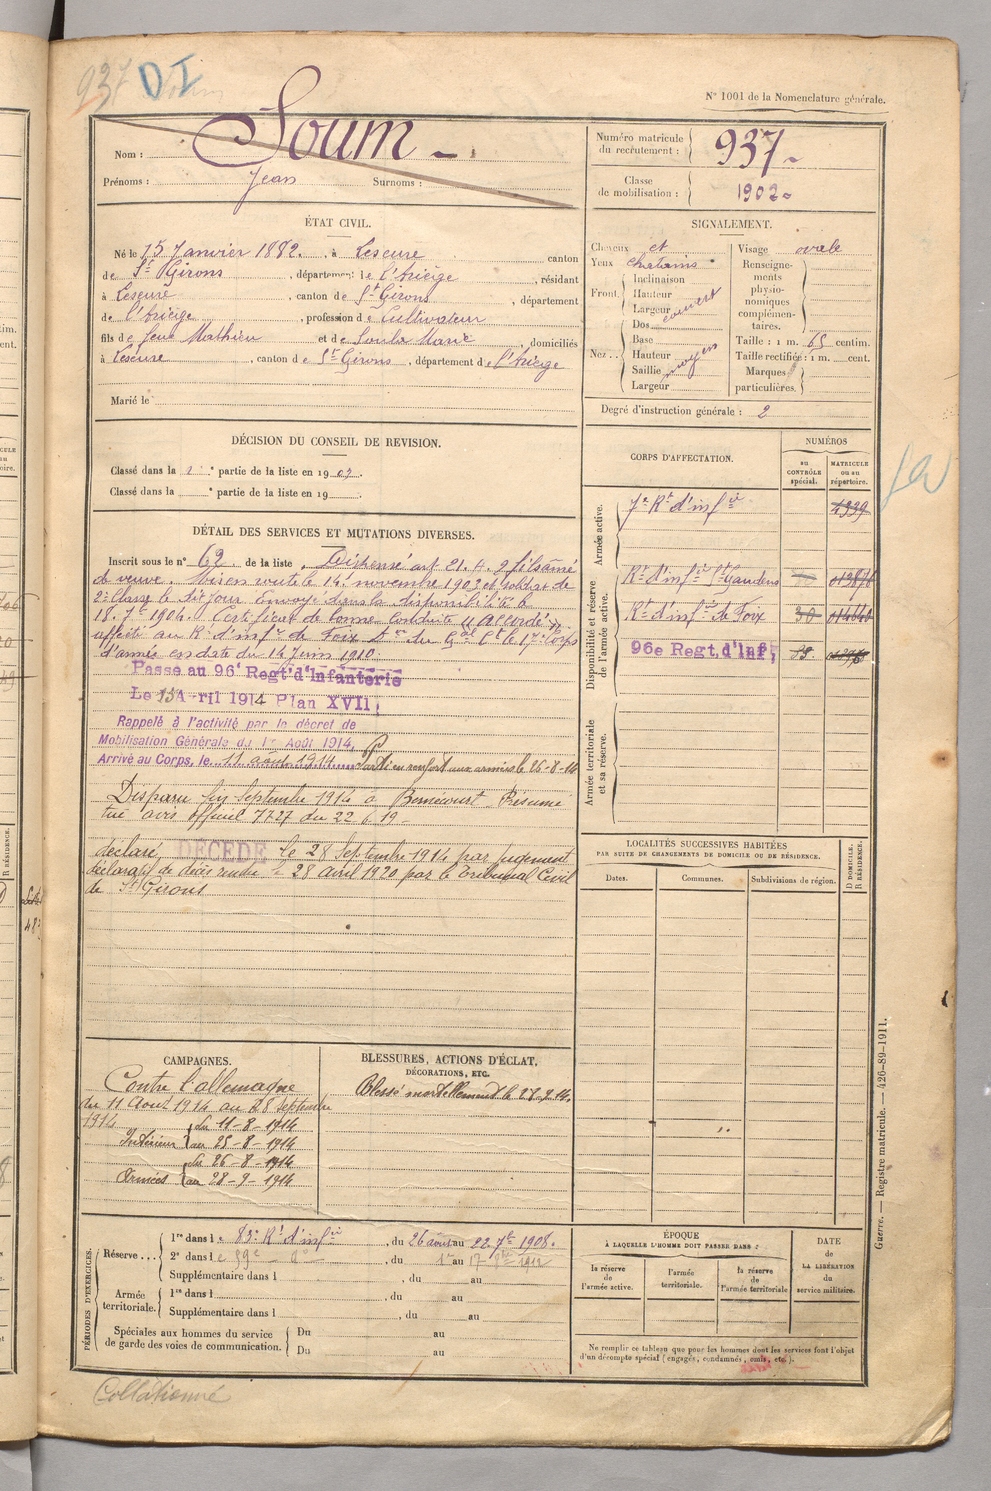 937 D I
N° 1001 de la Nomenclature générale.
Nom : Soum
Prénoms : Jean Surnoms :
Numéro matricule du recrutement : 937
Classe de mobilisation : 1902
ÉTAT CIVIL.
Né le 15 Janvier 1882, à Lescure canton
de St Girons, département de l'Ariège, résidant
à Lescure, canton de St Girons, département
de l'Ariège, profession de Cultivateur
fils de feu Mathieu et de Soula Marie, domiciliés
à Lescure, canton de St Girons, département de l'Ariège
Marié le
SIGNALEMENT.
Cheveux et
Yeux chatains
Front. Inclinaison
Hauteur
Largeur couvert
Nez... Dos
Base
Hauteur
Saillie moyen
Largeur
Visage ovale
Renseignements physionomiques complémentaires.
Taille : 1 m. 65 centim.
Taille rectifiée : 1 m. cent.
Marques particulières.
Degré d'instruction générale : 2
DÉCISION DU CONSEIL DE REVISION.
Classé dans la 2e partie de la liste en 1903.
Classé dans la e partie de la liste en 19
CORPS D'AFFECTATION.
NUMÉROS
au CONTRÔLE spécial.
MATRICULE ou au répertoire.
Armée active.
7e Rt d'infie 4939
Disponibilité et réserve de l'armée active.
Rt d'infie St Gaudens
Rt d'infie de Foix 30
96e Regt d'Inf;
Armée territoriale et sa réserve.
DÉTAIL DES SERVICES ET MUTATIONS DIVERSES.
Inscrit sous le n° 62 de la liste Dispensé art 21. A. 2 fils aîné
de veuve. Mis en route le 14 novembre 1903 et soldat de
2e Classe le dit jour. Envoyé dans la disponibilité le
18. 7bre 1904. Certificat de bonne Conduite « Accordé »
affecté au Rt d'infie de Foix Don du Gal Ct le 17e Corps
d'armée en date du 14 Juin 1910.
Passé au 96e Regt d'Infanterie
Le 15 Avril 1914 Plan XVII;
Rappelé à l'activité par le décret de
Mobilisation Générale du 1er Août 1914,
Arrivé au Corps, le 11 août 1914. Parti en renfort aux armées le 26-8-14
Disparu fin Septembre 1914 à Bernécourt Présumé
tué avis officiel 7727 du 22.6.19
déclaré DÉCÉDÉ le 28 Septembre 1914 par jugement
déclaratif de décès rendu le 28 avril 1920 par le Tribunal Civil
de St Girons
LOCALITÉS SUCCESSIVES HABITÉES
PAR SUITE DE CHANGEMENTS DE DOMICILE OU DE RÉSIDENCE.
Dates. Communes. Subdivisions de région. D DOMICILE. R RÉSIDENCE.
CAMPAGNES.
Contre l'allemagne
du 11 Aout 1914 au 28 Septembre
1914
Intérieur du 11-8-1914
au 25-8-1914
Armées du 26-8-1914
au 28-9-1914
BLESSURES, ACTIONS D'ÉCLAT,
DÉCORATIONS, ETC.
Blessé mortellement le 28-9-14.
PÉRIODES D'EXERCICES.
Réserve... 1re dans le 83e Rt d'infie, du 26 août au 22 7bre 1908.
2e dans le 59e, du 1er au 17 1912
Supplémentaire dans l , du au
Armée territoriale. 1re dans l , du au
Supplémentaire dans l , du au
Spéciales aux hommes du service de garde des voies de communication. Du au
Du au
ÉPOQUE
À LAQUELLE L'HOMME DOIT PASSER DANS :
la réserve de l'armée active.
l'armée territoriale.
la réserve de l'armée territoriale
DATE de LA LIBÉRATION du service militaire.
Ne remplir ce tableau que pour les hommes dont les services font l'objet
d'un décompte spécial (engagés, condamnés, omis, etc.).
Guerre. — Registre matricule. — 426-89-1911.
Collationné